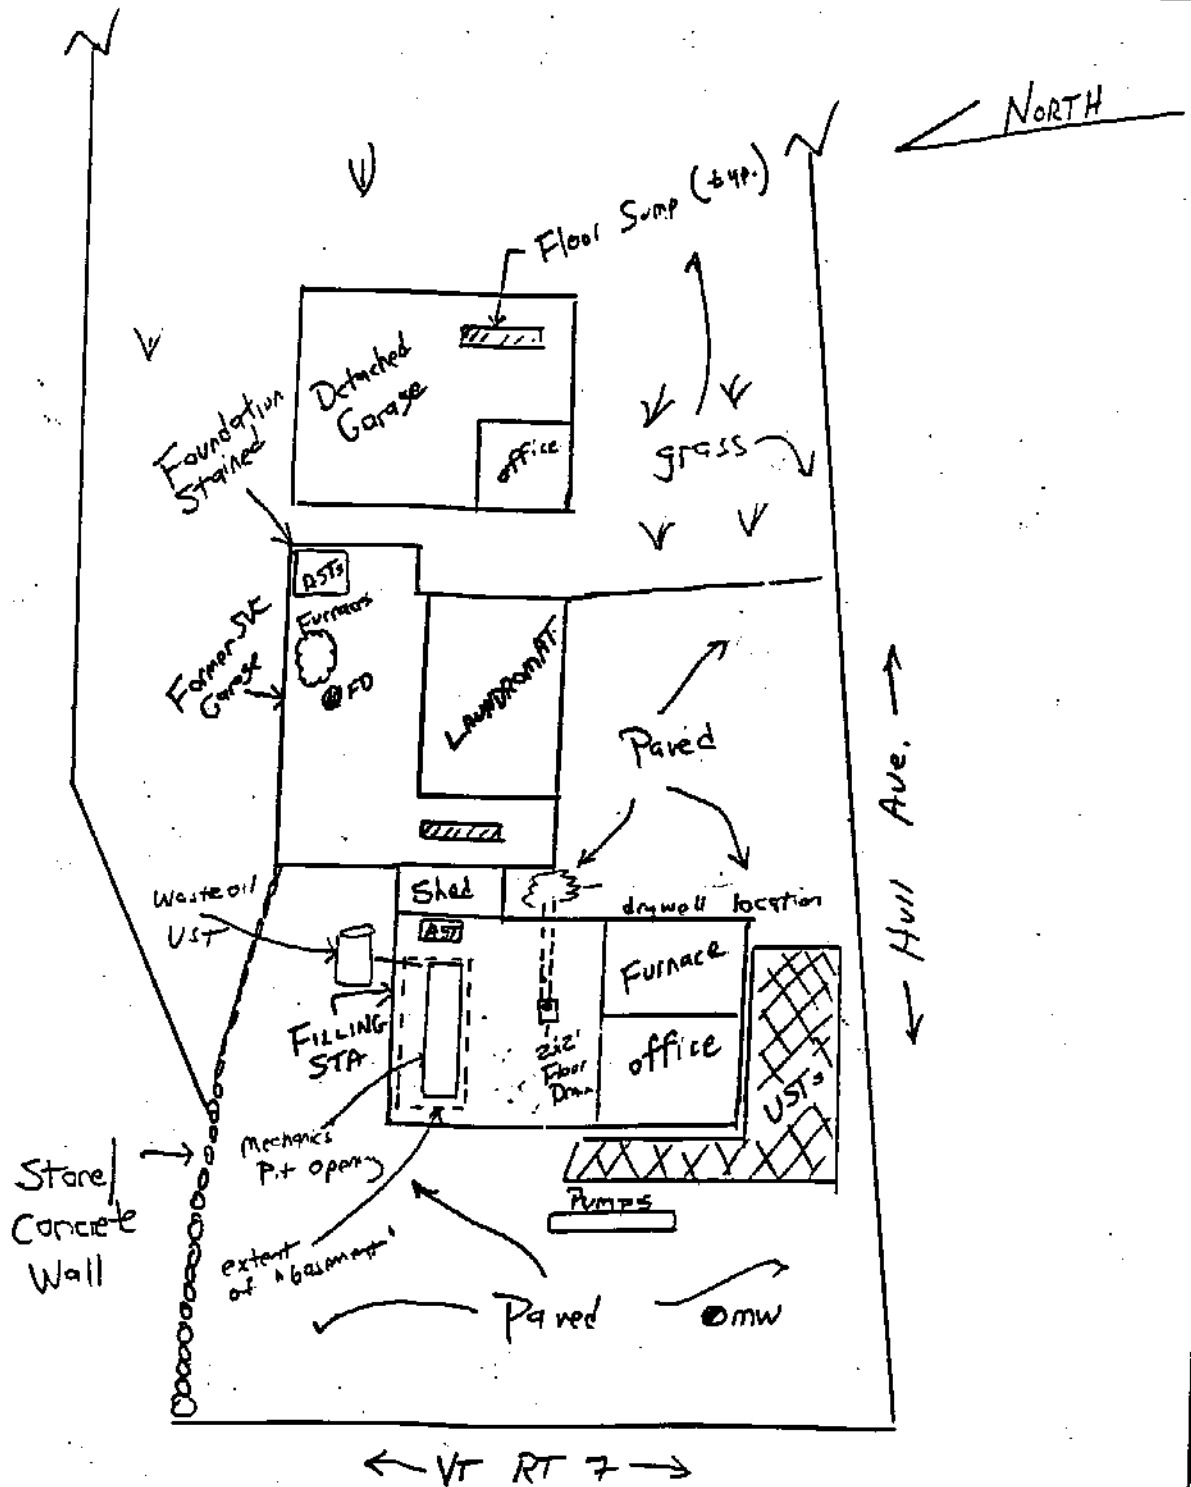 NORTH
Floor Sump (typ.)
Detached
Garage
office
grass
Foundation
Stained
ASTs
Furnace
Former SVC
Garage
FD
LAUNDROMAT
Paved
Hull Ave.
Waste oil
UST
Shed
drywell location
AST
Furnace
FILLING
STA
2'x2'
Floor
Drain
office
USTs
Mechanics
Pit opening
Stone/
Concrete
Wall
Pumps
extent
of "basement"
Paved
MW
VT RT 7